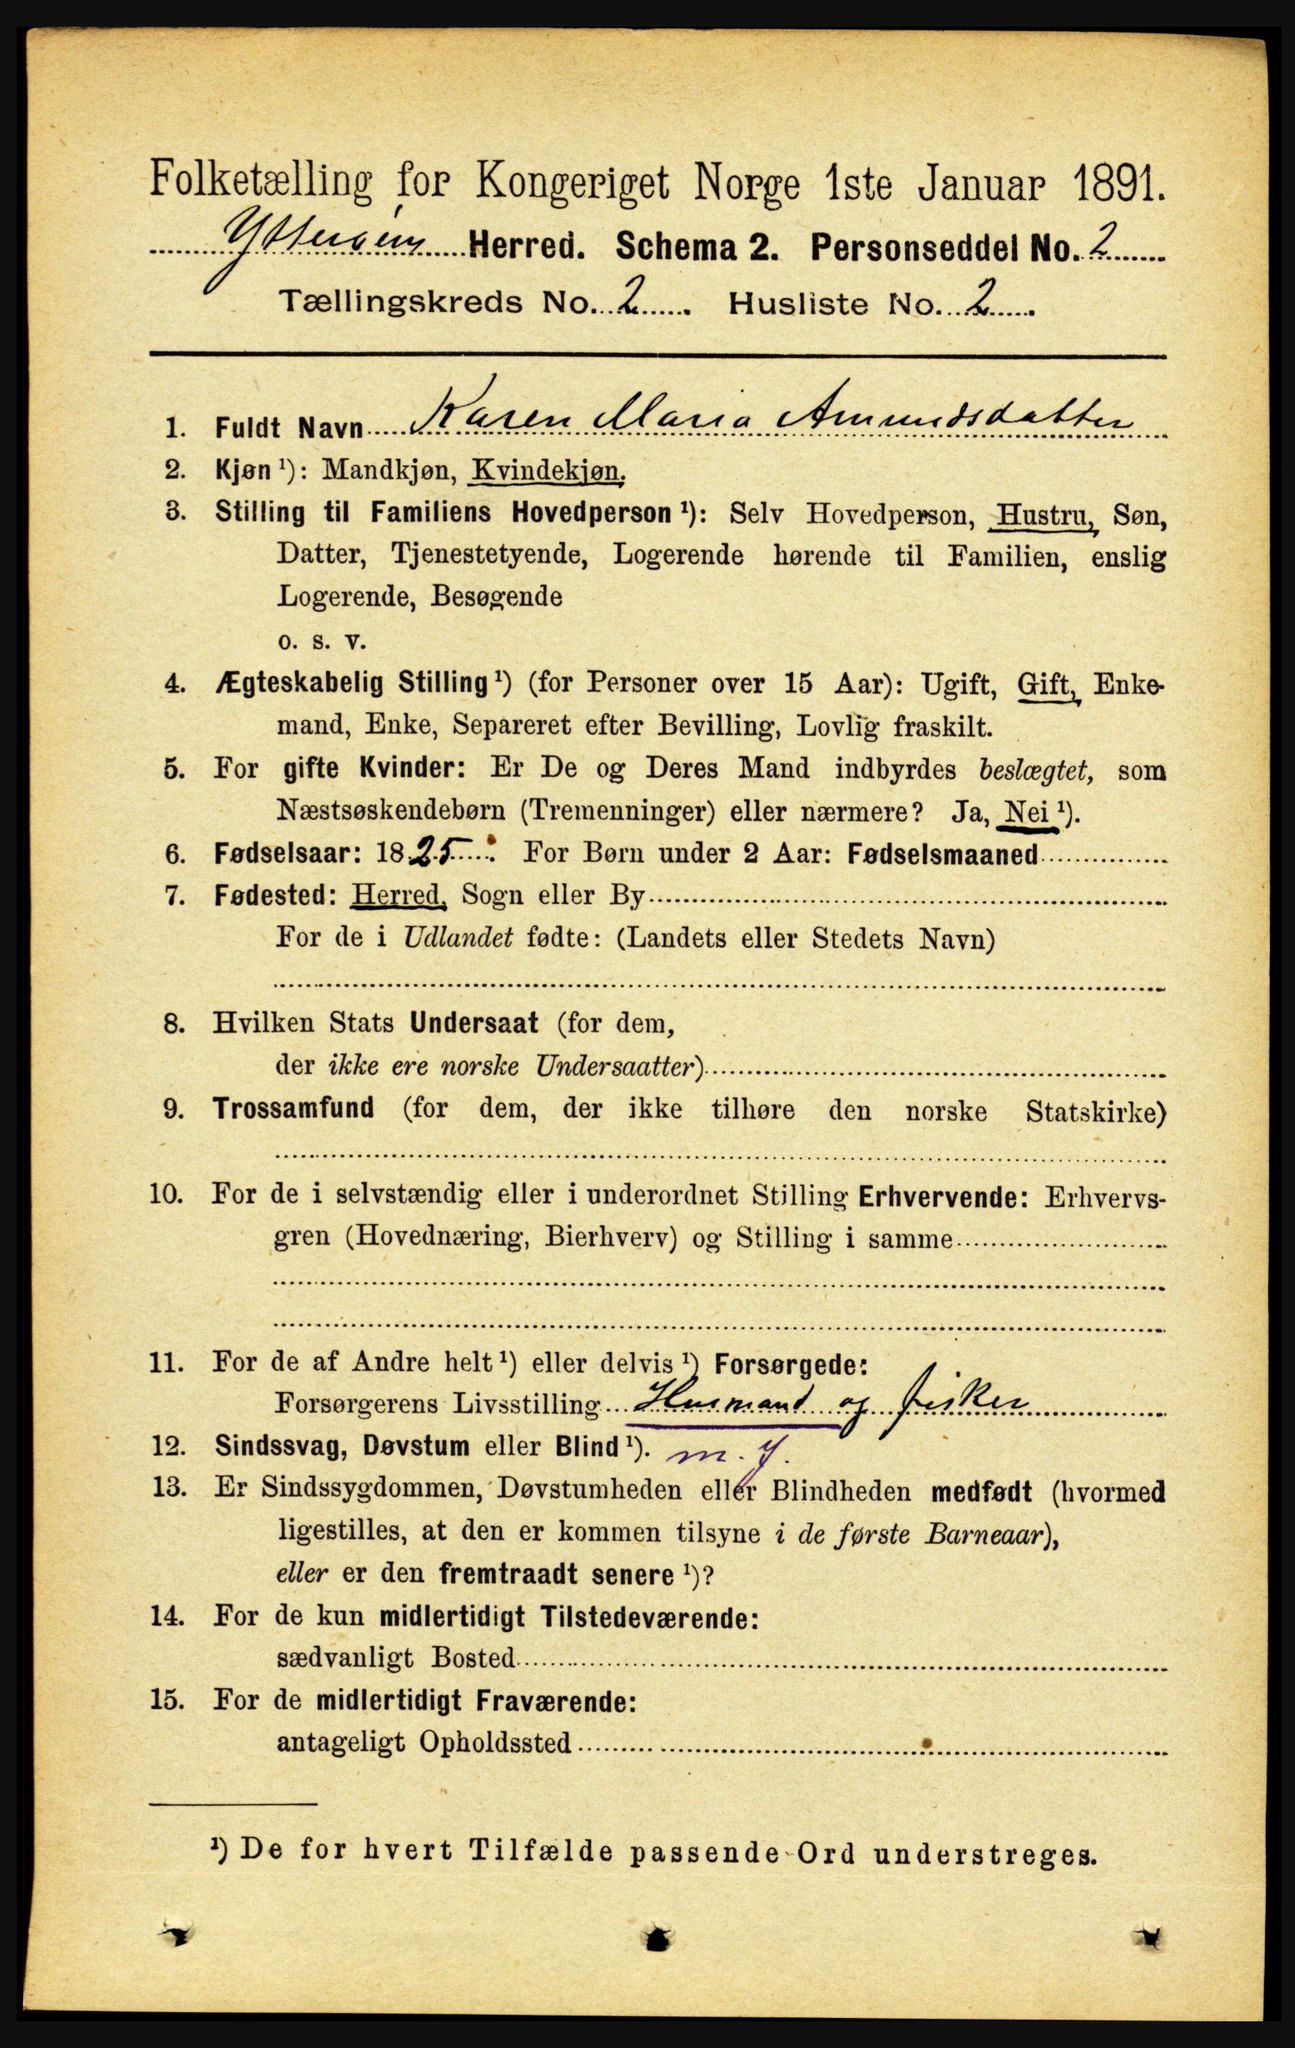 Folketælling for Kongeriget Norge 1ste Januar 1891.
Ytterøen Herred. Schema 2. Personseddel No. 2
Tællingskreds No. 2. Husliste No. 2.
1. Fuldt Navn Karen Maria Amundsdatter
2. Kjøn ¹): Mandkjøn, Kvindekjøn.
3. Stilling til Familiens Hovedperson ¹): Selv Hovedperson, Hustru, Søn,
Datter, Tjenestetyende, Logerende hørende til Familien, enslig
Logerende, Besøgende
o. s. v.
4. Ægteskabelig Stilling ¹) (for Personer over 15 Aar): Ugift, Gift, Enke-
mand, Enke, Separeret efter Bevilling, Lovlig fraskilt.
5. For gifte Kvinder: Er De og Deres Mand indbyrdes beslægtet, som
Næstsøskendebørn (Tremenninger) eller nærmere? Ja, Nei ¹).
6. Fødselsaar: 1825. For Børn under 2 Aar: Fødselsmaaned
7. Fødested: Herred, Sogn eller By
For de i Udlandet fødte: (Landets eller Stedets Navn)
8. Hvilken Stats Undersaat (for dem,
der ikke ere norske Undersaatter)
9. Trossamfund (for dem, der ikke tilhøre den norske Statskirke)
10. For de i selvstændig eller i underordnet Stilling Erhvervende: Erhvervs-
gren (Hovednæring, Bierhverv) og Stilling i samme
11. For de af Andre helt ¹) eller delvis ¹) Forsørgede:
Forsørgerens Livsstilling Husmand og fisker
12. Sindssvag, Døvstum eller Blind ¹). m. J.
13. Er Sindssygdommen, Døvstumheden eller Blindheden medfødt (hvormed
ligestilles, at den er kommen tilsyne i de første Barneaar),
eller er den fremtraadt senere ¹)?
14. For de kun midlertidigt Tilstedeværende:
sædvanligt Bosted
15. For de midlertidigt Fraværende:
antageligt Opholdssted
¹) De for hvert Tilfælde passende Ord understreges.